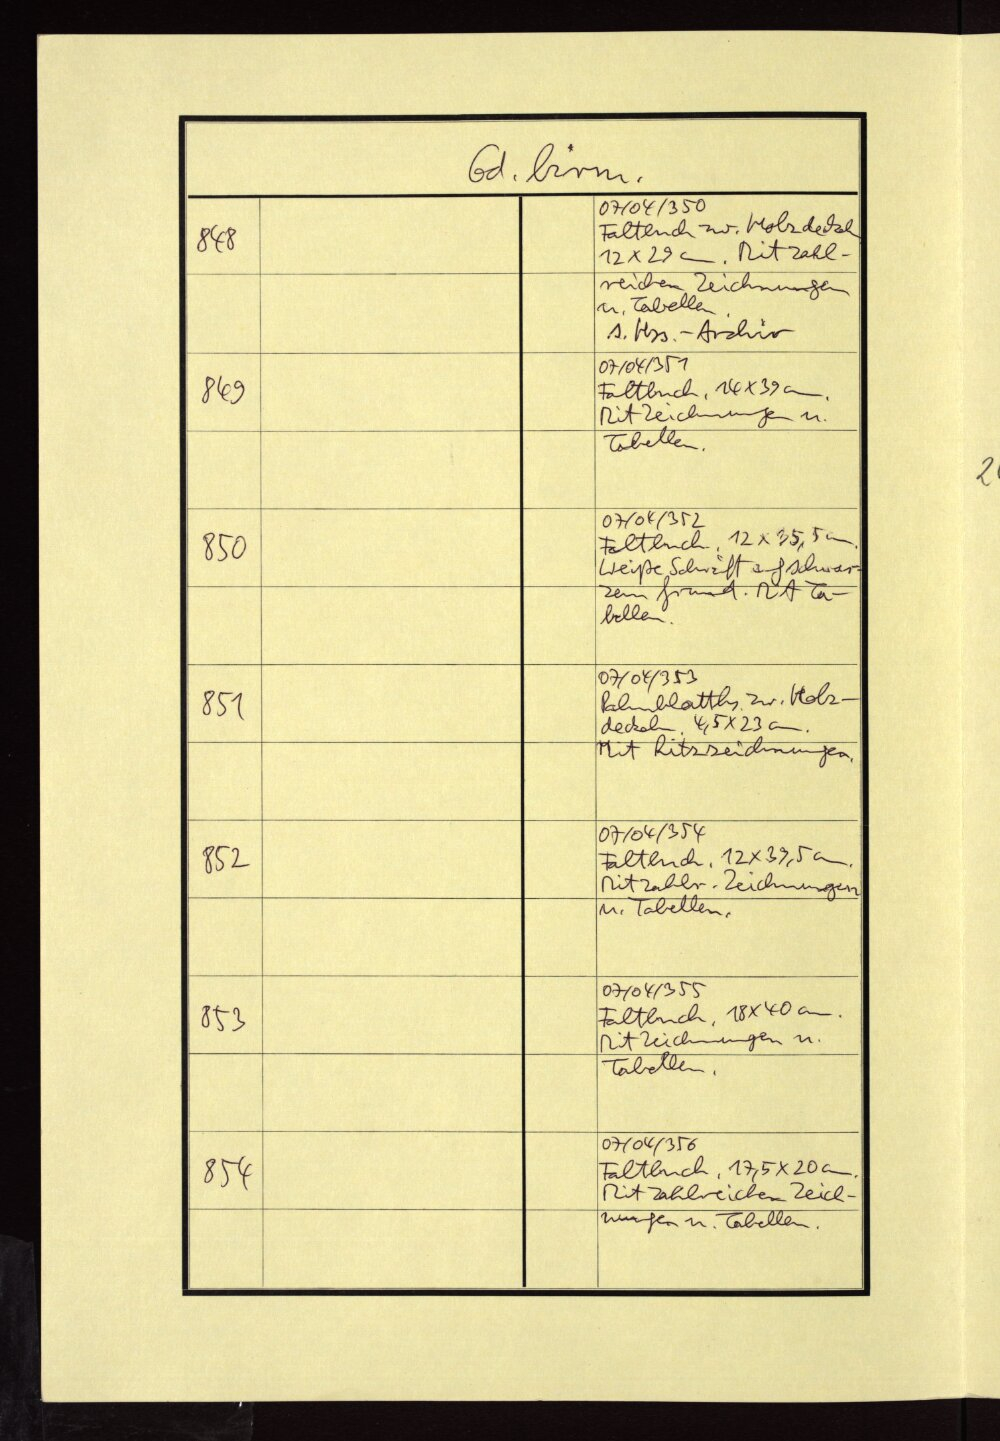 Cod. birm.
848
07/04/350
Faltbuch zw. Holzdeckeln
12 x 29 cm. Mit zahl-
reichen Zeichnungen
u. Tabellen.
s. Hss.-Archiv
849
07/04/351
Faltbuch, 14 x 39 cm.
Mit Zeichnungen u.
Tabellen.
850
07/04/352
Faltbuch, 12 x 35,5 cm.
Weiße Schrift auf schwar-
zem Grund. Mit Ta-
bellen.
851
07/04/353
Palmblatths. zw. Holz-
deckeln, 4,5 x 23 cm.
Mit Ritzzeichnungen.
852
07/04/354
Faltbuch, 12 x 39,5 cm.
Mit zahlr. Zeichnungen
u. Tabellen.
853
07/04/355
Faltbuch, 18 x 40 cm.
Mit Zeichnungen u.
Tabellen.
854
07/04/356
Faltbuch, 17,5 x 20 cm.
Mit zahlreichen Zeich-
nungen u. Tabellen.